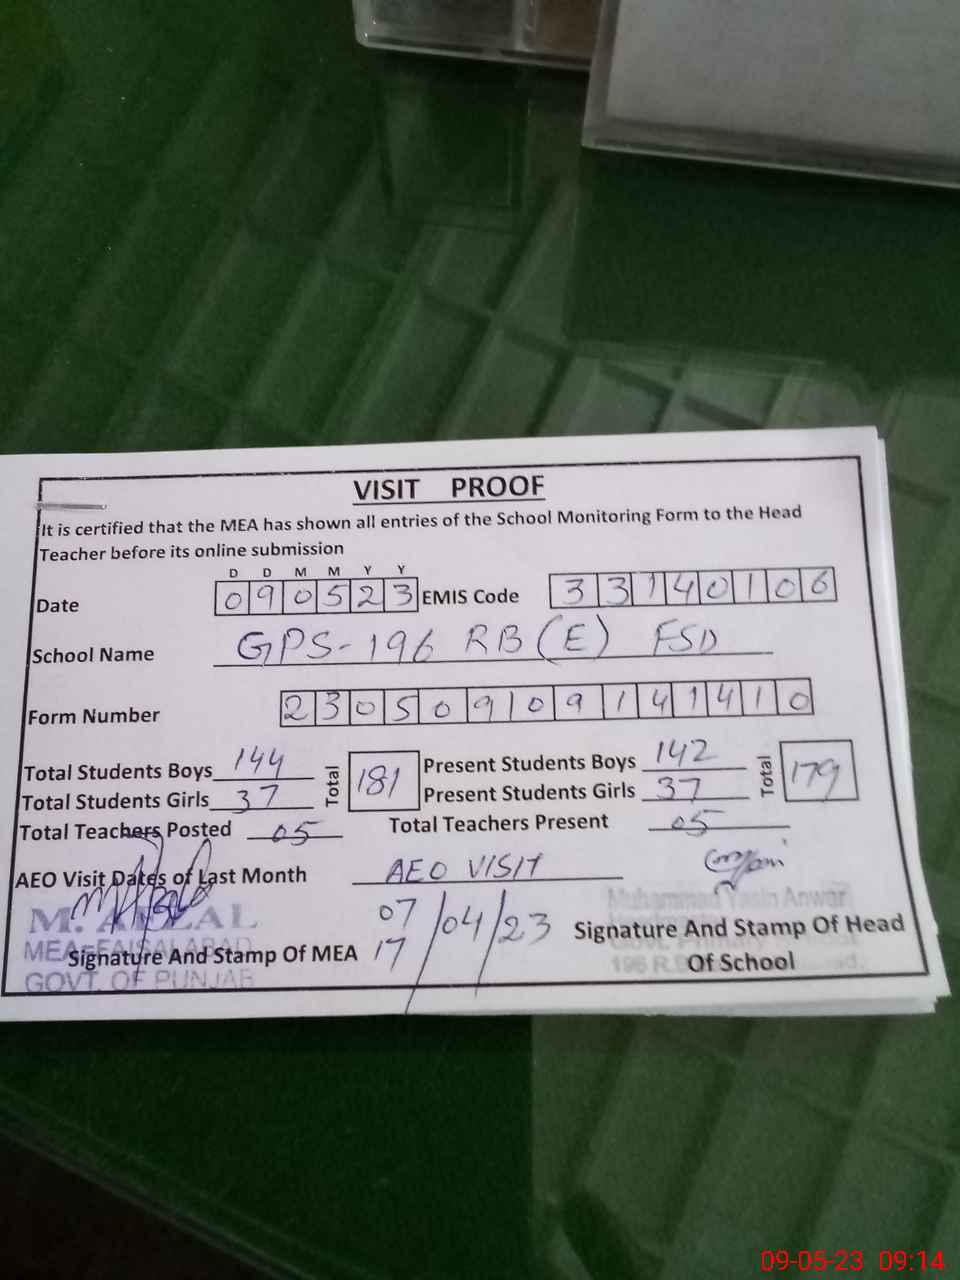 VISIT PROOF
It is certified that the MEA has shown all entries of the School Monitoring Form to the Head
Teacher before its online submission
D D M M Y Y
Date 090523 EMIS Code 33140106
School Name GPS-196 RB (E) FSD
Form Number 23050909141410
Total Students Boys 144 Total 181 Present Students Boys 142 Total 179
Total Students Girls 37 Present Students Girls 37
Total Teachers Posted 05 Total Teachers Present 05
AEO Visit Dates of Last Month AEO VISIT
07/04/23
17
M. AFZAL
MEA-FAISALABAD
GOVT. OF PUNJAB
Signature And Stamp Of MEA
Muhammad Yasin Anwar
Signature And Stamp Of Head
Of School
196 R.B
09-05-23 09:14